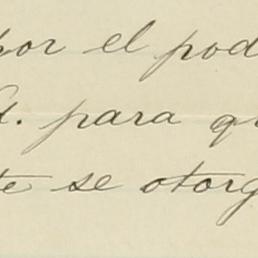 por el pod
d. para qu
te se otorg